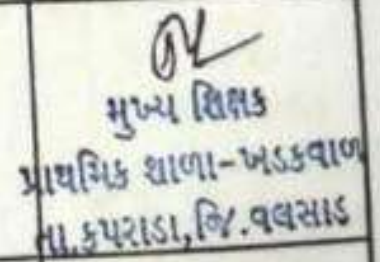 મુખ્ય શિક્ષક
પ્રાથમિક શાળા-ખડકવાળ
તા.કપરાડા,જિ.વલસાડ